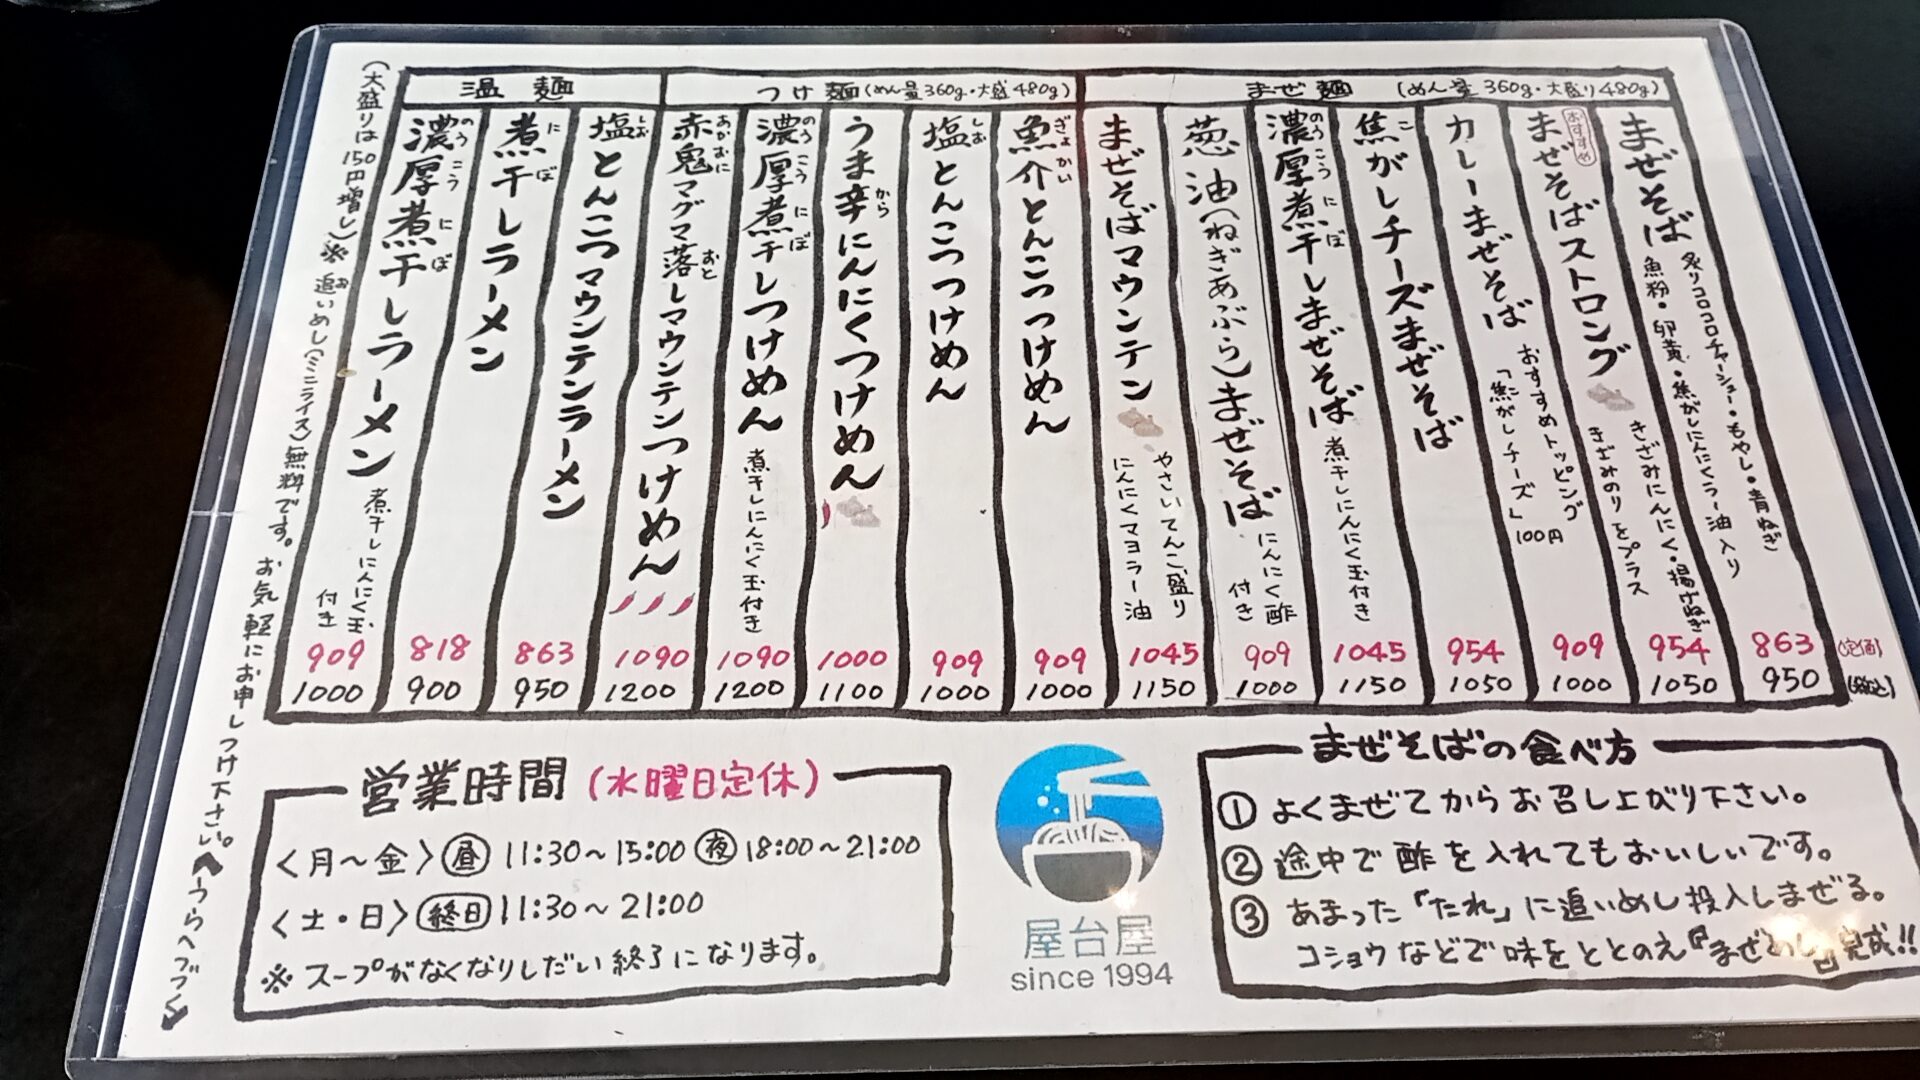 まぜ麺 (めん量360g・大盛り480g)
まぜそば
炙りコロコロチャーシュー・もやし・青ねぎ
魚粉・卵黄・焦がしにんにくラー油入り
863 (定価)
950 (税込)
おすすめ
まぜそばストロング
きざみにんにく・揚げねぎ
きざみのりをプラス
954
1050
カレーまぜそば
おすすめトッピング
「焦がしチーズ」100円
909
1000
焦がしチーズまぜそば
954
1050
濃厚煮干しまぜそば
煮干しにんにく玉付き
1045
1150
葱油(ねぎあぶら)まぜそば
にんにく酢
付き
909
1000
まぜそばマウンテン
やさいてんこ盛り
にんにくマヨラー油
1045
1150
つけ麺 (めん量360g・大盛480g)
魚介とんこつつけめん
909
1000
塩とんこつつけめん
909
1000
うま辛にんにくつけめん
1000
1100
濃厚煮干しつけめん
煮干しにんにく玉付き
1090
1200
赤鬼マグマ落しマウンテンつけめん
1090
1200
温麺
塩とんこつマウンテンラーメン
863
950
煮干しラーメン
818
900
濃厚煮干しラーメン
煮干しにんにく玉
付き
909
1000
(大盛りは150円増し)※追いめし(ミニライス)無料です。お気軽にお申しつけ下さい。
うらへつづく
営業時間 (水曜日定休)
<月~金>昼11:30~15:00 夜18:00~21:00
<土・日>終日11:30~21:00
※スープがなくなりしだい終了になります。
屋台屋
since 1994
まぜそばの食べ方
①よくまぜてからお召し上がり下さい。
②途中で酢を入れてもおいしいです。
③あまった「たれ」に追いめし投入しまぜる。
コショウなどで味をととのえ『まぜめし』完成!!